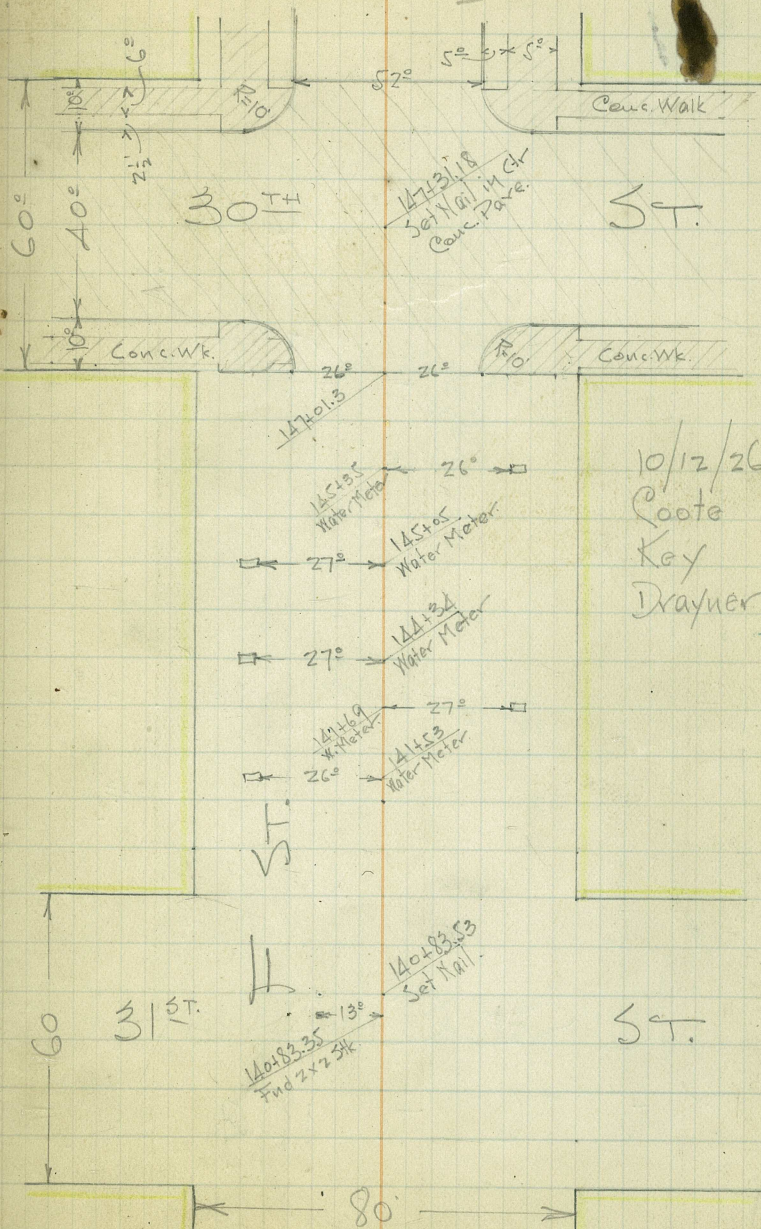 6⁰
10⁰
2½'
60⁰
40⁰
10⁰
R=10
52⁰
5⁰
5⁰
Conc. Walk
30TH
ST.
147+31.18
Set Nail in Ctr
Conc. Pave.
Conc. Wk.
R=10
Conc. Wk.
26⁰
26⁰
147+01.3
145+35
Water Meter
26⁰
10/12/26
Coote
Key
Drayner
27⁰
145+05
Water Meter.
27⁰
144+34
Water Meter
141+69
W. Meter.
27⁰
26⁰
141+53
Water Meter
F ST.
140+83.53
Set Nail.
13⁰
31ST.
ST.
140+83.35
Fnd 2x2 Stk
60
80